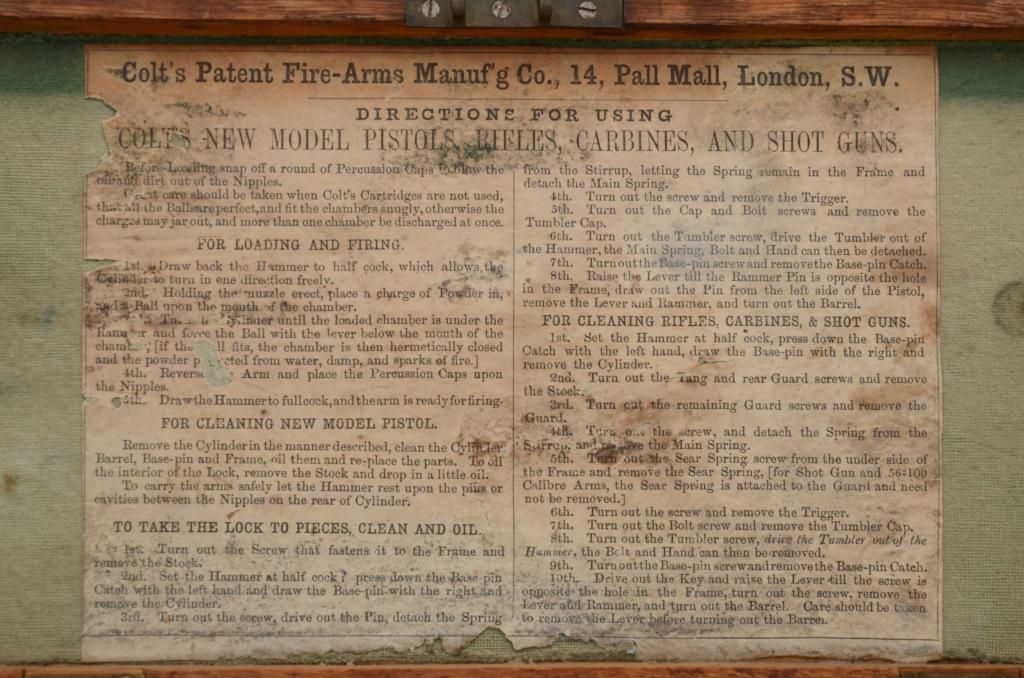 Colt's Patent Fire-Arms Manuf'g Co., 14, Pall Mall, London, S.W.
DIRECTIONS FOR USING
COLT'S NEW MODEL PISTOLS, RIFLES, CARBINES, AND SHOT GUNS.
Before Loading snap off a round of Percussion Caps to blow the
oil and dirt out of the Nipples.
Great care should be taken when Colt's Cartridges are not used,
that all the Balls are perfect, and fit the chambers snugly, otherwise the
charges may jar out, and more than one chamber be discharged at once.
FOR LOADING AND FIRING.
1st. Draw back the Hammer to half cock, which allows the
Cylinder to turn in one direction freely.
2nd. Holding the muzzle erect, place a charge of Powder in,
and a Ball upon the mouth of the chamber.
Cylinder until the loaded chamber is under the
Rammer and force the Ball with the lever below the mouth of the
[if the fits, the chamber is then hermetically closed
and the powder from water, damp, and sparks of fire.]
4th. Reverse Arm and place the Percussion Caps upon
the Nipples.
5th. Draw the Hammer to full cock, and the arm is ready for firing.
FOR CLEANING NEW MODEL PISTOL.
Remove the Cylinder in the manner described, clean the Cylinder
Barrel, Base-pin and Frame, oil them and re-place the parts. To oil
the interior of the Lock, remove the Stock and drop in a little oil.
To carry the arms safely let the Hammer rest upon the pins or
cavities between the Nipples on the rear of Cylinder.
TO TAKE THE LOCK TO PIECES, CLEAN AND OIL.
1st. Turn out the Screw that fastens it to the Frame and
remove the Stock.
2nd. Set the Hammer at half cock; press down the Base-pin
Catch with the left hand and draw the Base-pin with the right and
remove the Cylinder.
3rd. Turn out the screw, drive out the Pin, detach the Spring
from the Stirrup, letting the Spring remain in the Frame and
detach the Main Spring.
4th. Turn out the screw and remove the Trigger.
5th. Turn out the Cap and Bolt screws and remove the
Tumbler Cap.
6th. Turn out the Tumbler screw, drive the Tumbler out of
the Hammer, the Main Spring, Bolt and Hand can then be detached.
7th. Turn out the Base-pin screw and remove the Base-pin Catch.
8th. Raise the Lever till the Rammer Pin is opposite the hole
in the Frame, draw out the Pin from the left side of the Pistol,
remove the Lever and Rammer, and turn out the Barrel.
FOR CLEANING RIFLES, CARBINES, & SHOT GUNS.
1st. Set the Hammer at half cock, press down the Base-pin
Catch with the left hand, draw the Base-pin with the right and
remove the Cylinder.
2nd. Turn out the Tang and rear Guard screws and remove
the Stock.
3rd. Turn out the remaining Guard screws and remove the
Guard.
4th. Turn out the screw, and detach the Spring from the
Stirrup, and remove the Main Spring.
5th. Turn out the Sear Spring screw from the under side of
the Frame and remove the Sear Spring, [for Shot Gun and 56-100
Calibre Arms, the Sear Spring is attached to the Guard and need
not be removed.]
6th. Turn out the screw and remove the Trigger.
7th. Turn out the Bolt screw and remove the Tumbler Cap.
8th. Turn out the Tumbler screw, drive the Tumbler out of the
Hammer, the Bolt and Hand can then be removed.
9th. Turn out the Base-pin screw and remove the Base-pin Catch.
10th. Drive out the Key and raise the Lever till the screw is
opposite the hole in the Frame, turn out the screw, remove the
Lever and Rammer, and turn out the Barrel. Care should be taken
to remove the Lever before turning out the Barrel.